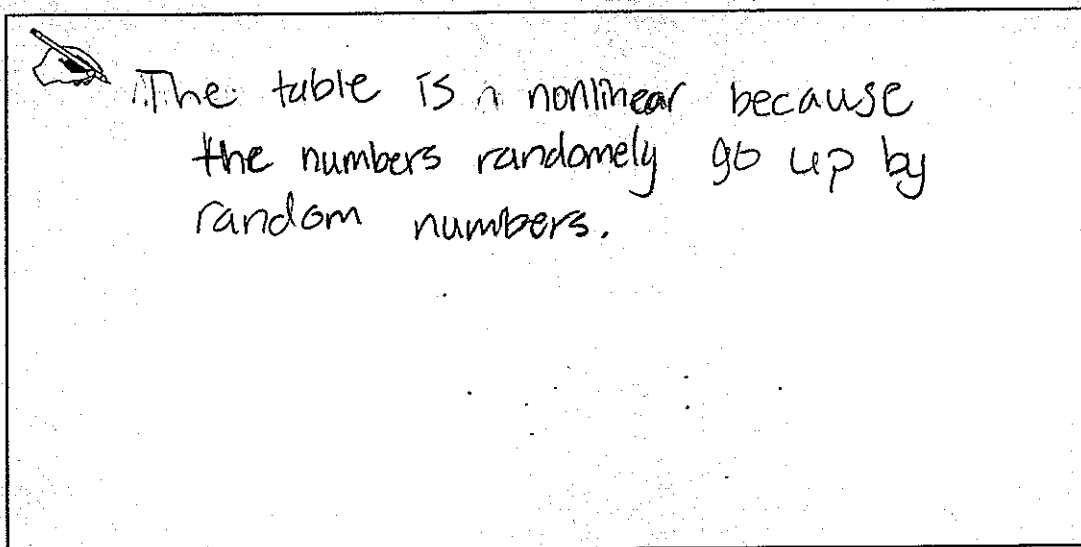 The table is a nonlinear because
the numbers randomely go up by
random numbers.